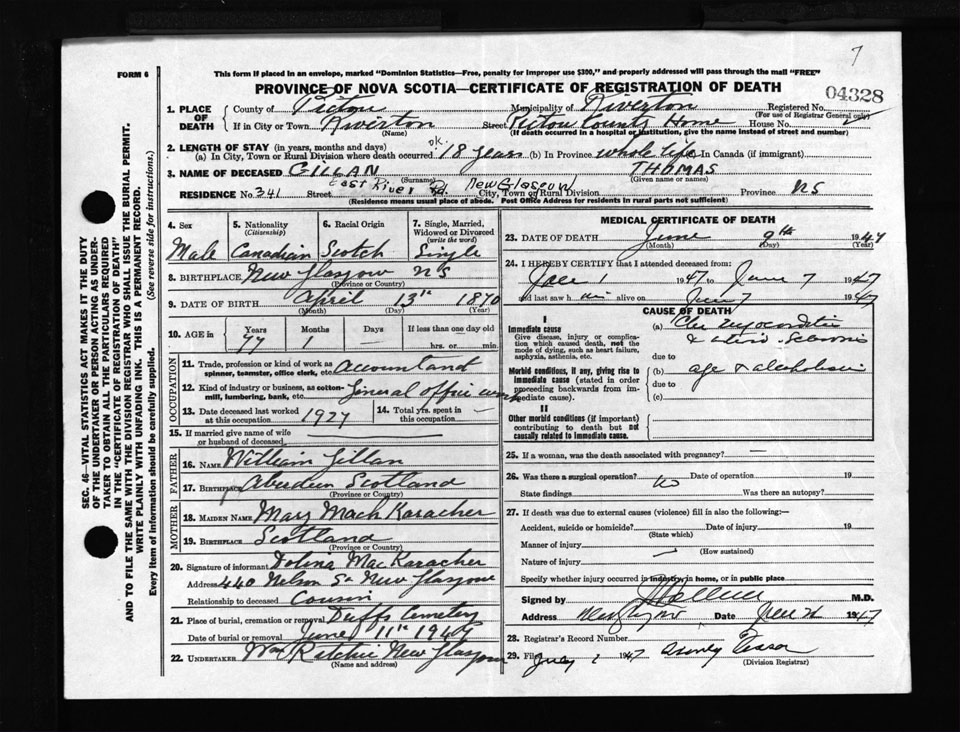 7
FORM 6
This form if placed in an envelope, marked "Dominion Statistics—Free, penalty for improper use $300," and properly addressed will pass through the mail "FREE"
PROVINCE OF NOVA SCOTIA—CERTIFICATE OF REGISTRATION OF DEATH
04328
1. PLACE OF DEATH
County of Pictou Municipality of Riverton Registered No.
(For use of Registrar General only)
If in City or Town Riverton Street Pictou County Home House No.
(Name) (If death occurred in a hospital or institution, give the name instead of street and number)
2. LENGTH OF STAY (in years, months and days)
(a) In City, Town or Rural Division where death occurred OK. 18 years (b) In Province whole life In Canada (if immigrant)
3. NAME OF DECEASED GILLAN THOMAS
(Surname) (Given name or names)
RESIDENCE No. 341 Street East River Rd. New Glasgow City, Town or Rural Division Province NS
(Residence means usual place of abode. Post Office Address for residents in rural parts not sufficient)
4. Sex
Male
5. Nationality
(Citizenship)
Canadian
6. Racial Origin
Scotch
7. Single, Married, Widowed or Divorced
(write the word)
Single
8. BIRTHPLACE New Glasgow NS
(Province or Country)
9. DATE OF BIRTH April 13th 1870
(Month) (Day) (Year)
10. AGE in Years Months Days If less than one day old
77 1 hrs. or min.
OCCUPATION
11. Trade, profession or kind of work as spinner, teamster, office clerk, etc. accountant
12. Kind of industry or business, as cotton-mill, lumbering, bank, etc. General office work
13. Date deceased last worked at this occupation 1927
14. Total yrs. spent in this occupation —
15. If married give name of wife or husband of deceased
FATHER
16. NAME William Gillan
17. BIRTHPLACE Aberdeen Scotland
(Province or Country)
MOTHER
18. MAIDEN NAME Mary MacKaracher
19. BIRTHPLACE Scotland
(Province or Country)
20. Signature of informant Dolina MacKaracher
Address 440 Nelson St New Glasgow
Relationship to deceased Cousin
21. Place of burial, cremation or removal Duffs Cemetery
Date of burial or removal June 11th
22. UNDERTAKER Wm Ritchie New Glasgow
(Name and address)
MEDICAL CERTIFICATE OF DEATH
23. DATE OF DEATH June 9th 1947
(Month) (Day) (Year)
24. I HEREBY CERTIFY that I attended deceased from:
1 1947 to June 7 1947
and last saw him alive on June 7 1947
CAUSE OF DEATH
I
Immediate cause
Give disease, injury or complication which caused death, not the mode of dying, such as heart failure, asphyxia, asthenia, etc.
(a) Chr myocarditis
due to
Morbid conditions, if any, giving rise to immediate cause (stated in order proceeding backwards from immediate cause).
(b) age & alcoholism
due to
(c)
II
Other morbid conditions (if important) contributing to death but not causally related to immediate cause.
25. If a woman, was the death associated with pregnancy? —
26. Was there a surgical operation? no Date of operation 19
State findings Was there an autopsy?
27. If death was due to external causes (violence) fill in also the following:—
Accident, suicide or homicide? Date of injury 19
(State which)
Manner of injury
(How sustained)
Nature of injury
Specify whether injury occurred in industry, in home, or in public place
Signed by M.D.
Address Date 1947
28. Registrar's Record Number
29. Filed July 2 1947
(Division Registrar)
SEC. 46—VITAL STATISTICS ACT MAKES IT THE DUTY
OF THE UNDERTAKER OR PERSON ACTING AS UNDER-
TAKER TO OBTAIN ALL THE PARTICULARS REQUIRED
IN THE "CERTIFICATE OF REGISTRATION OF DEATH"
AND TO FILE THE SAME WITH THE DIVISION REGISTRAR WHO SHALL ISSUE THE BURIAL PERMIT.
WRITE PLAINLY WITH UNFADING INK. THIS IS A PERMANENT RECORD.
Every item of information should be carefully supplied. (See reverse side for instructions.)